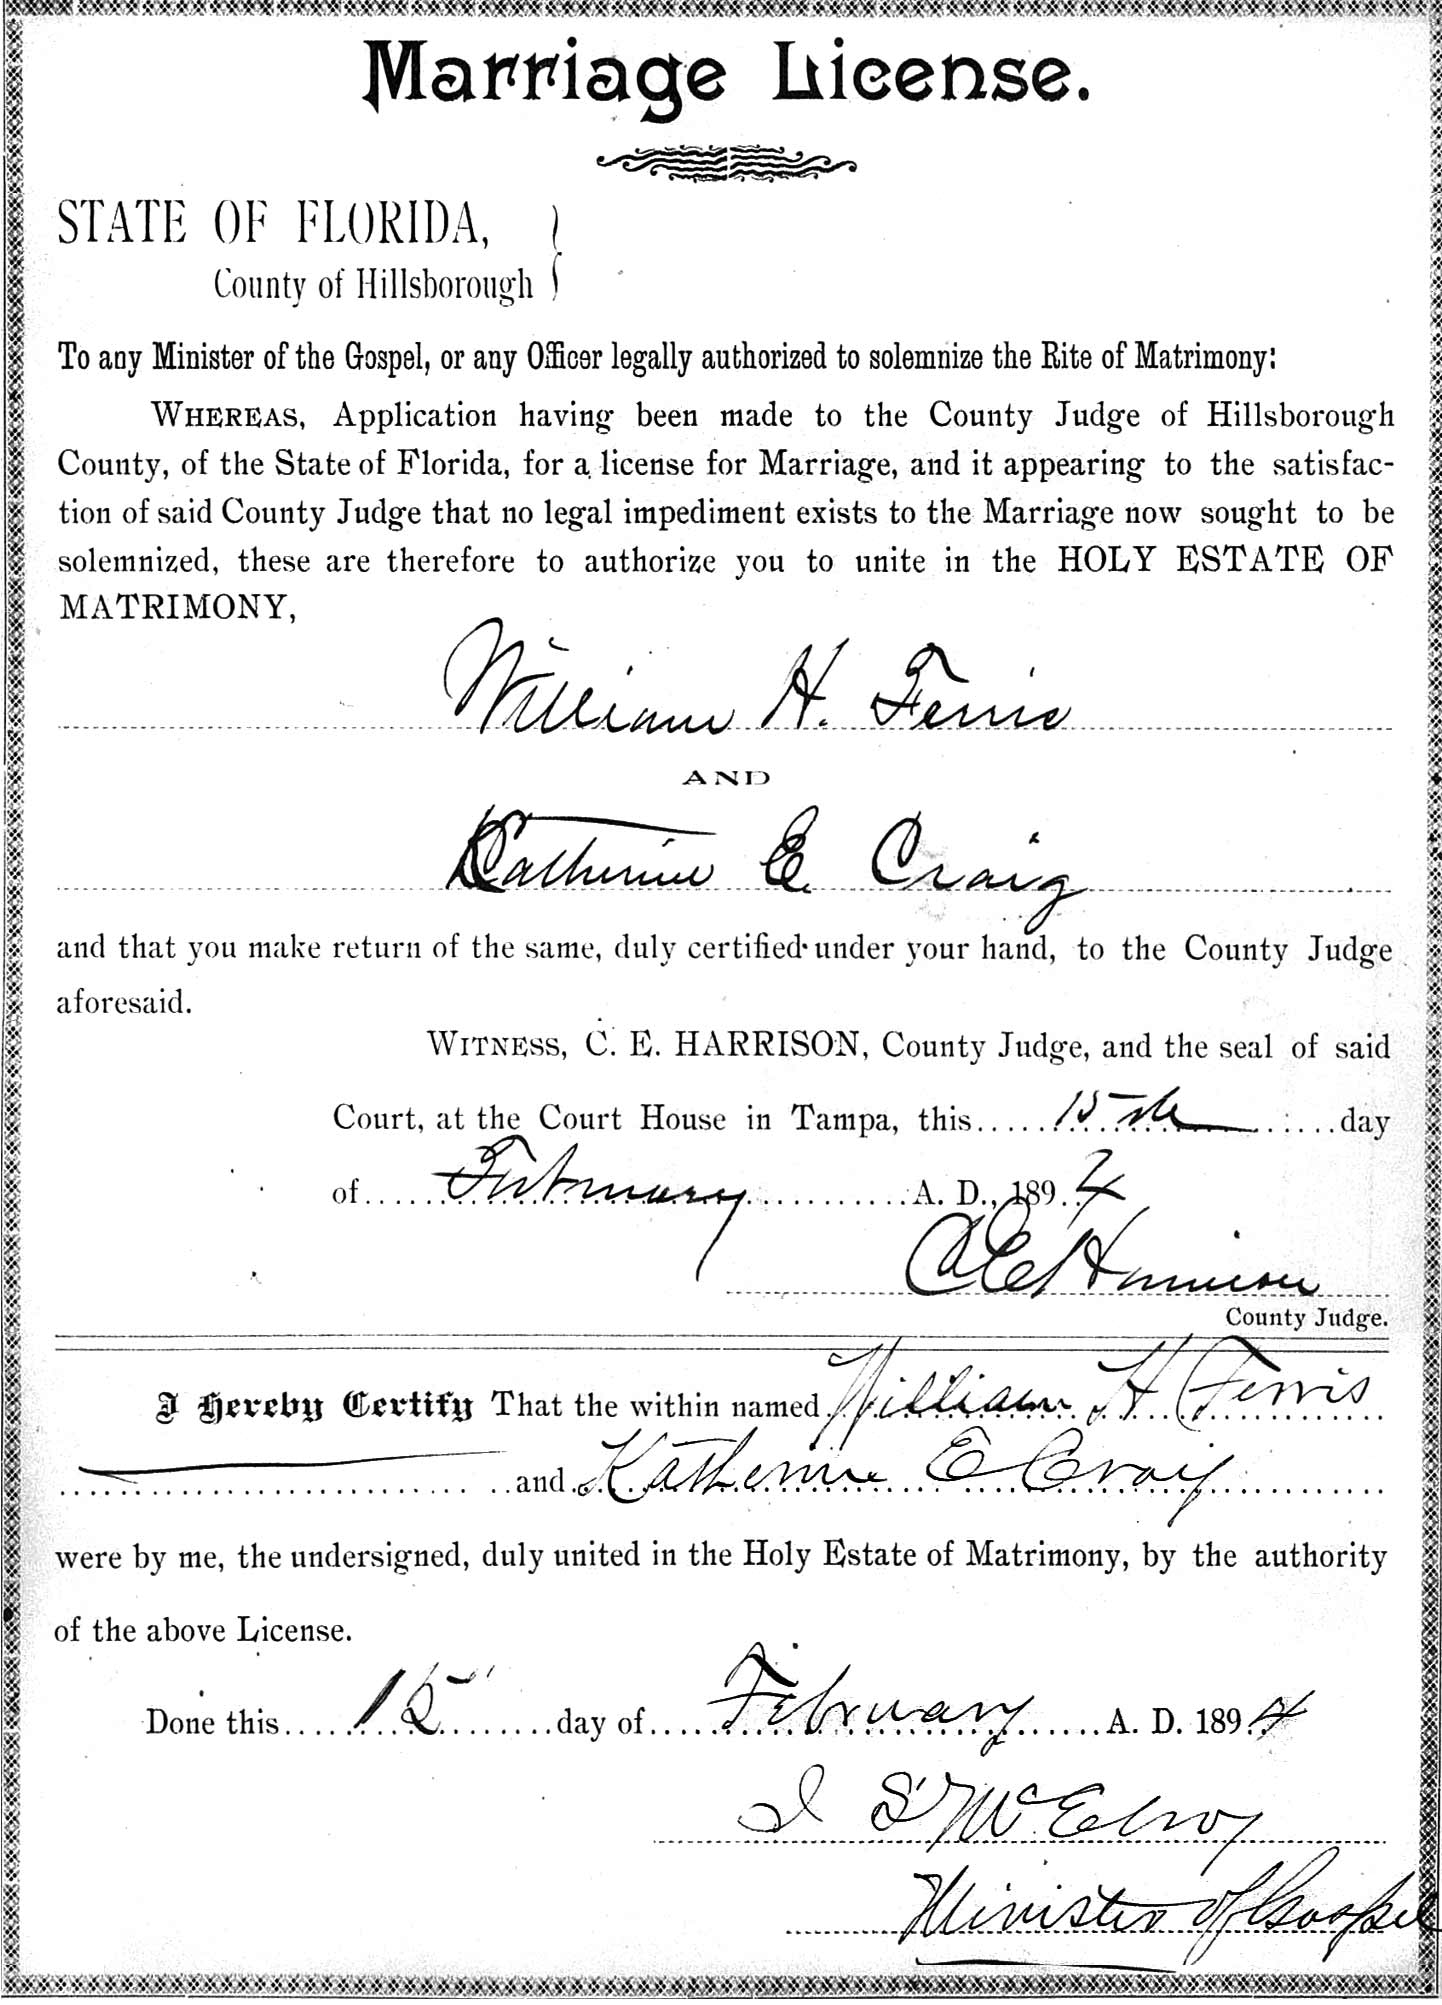 Marriage License.
STATE OF FLORIDA,
County of Hillsborough
To any Minister of the Gospel, or any Officer legally authorized to solemnize the Rite of Matrimony:
WHEREAS, Application having been made to the County Judge of Hillsborough
County, of the State of Florida, for a license for Marriage, and it appearing to the satisfac-
tion of said County Judge that no legal impediment exists to the Marriage now sought to be
solemnized, these are therefore to authorize you to unite in the HOLY ESTATE OF
MATRIMONY,
William H. Ferris
AND
Katherine E. Craig
and that you make return of the same, duly certified under your hand, to the County Judge
aforesaid.
WITNESS, C. E. HARRISON, County Judge, and the seal of said
Court, at the Court House in Tampa, this 15th day
of February A. D., 1894
C E Harrison
County Judge.
I Hereby Certify That the within named William H Ferris
and Katherine E Craig
were by me, the undersigned, duly united in the Holy Estate of Matrimony, by the authority
of the above License.
Done this 15" day of February A. D. 1894
I S McElroy
Minister of Gospel